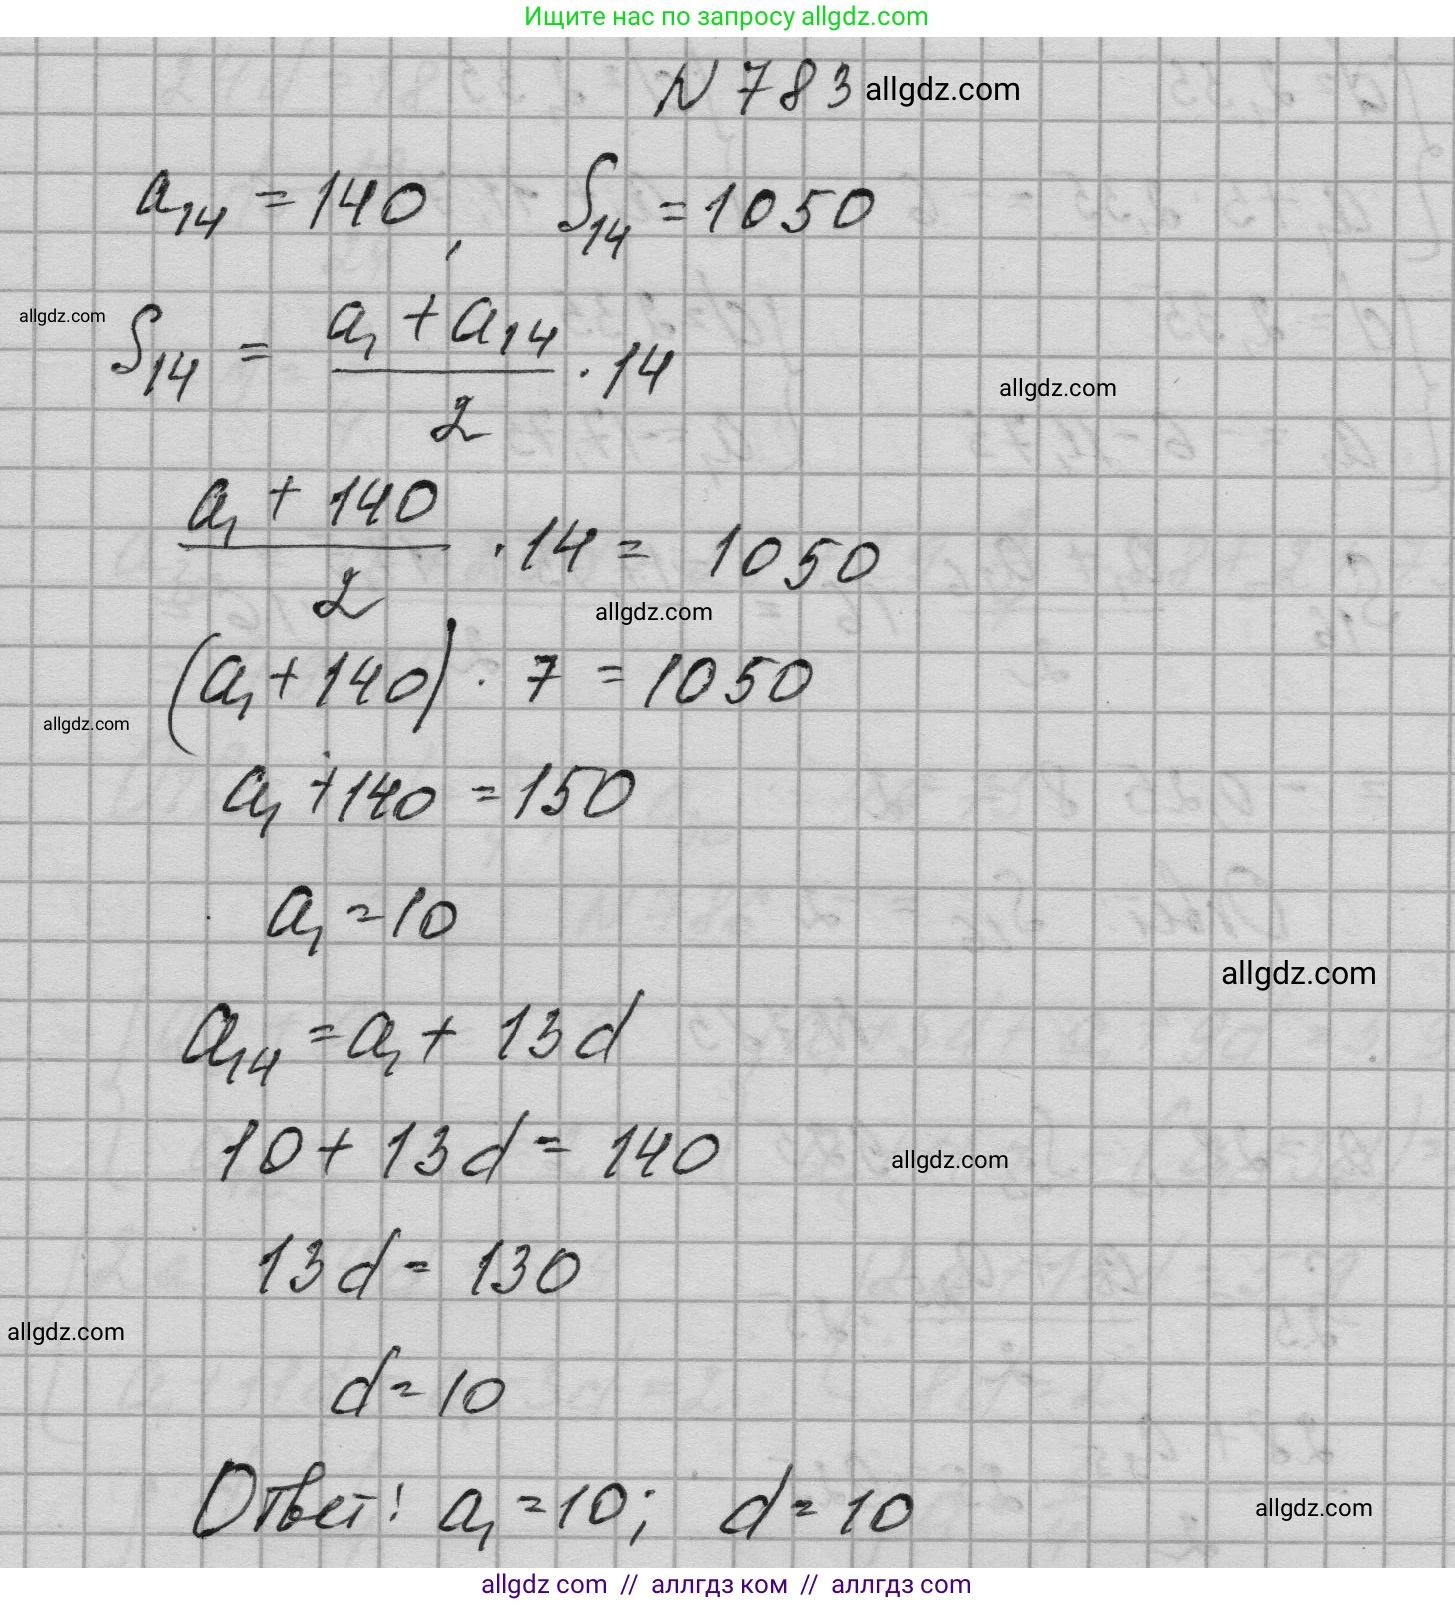 Ищите нас по запросу allgdz.com
N 783 allgdz.com
a₁₄ = 140, S₁₄ = 1050
allgdz.com
S₁₄ = (a₁ + a₁₄)/2 · 14
allgdz.com
(a₁ + 140)/2 · 14 = 1050
allgdz.com
(a₁ + 140) · 7 = 1050
allgdz.com
a₁ + 140 = 150
a₁ = 10
allgdz.com
a₁₄ = a₁ + 13d
10 + 13d = 140
allgdz.com
13d = 130
allgdz.com
d = 10
Ответ: a₁ = 10; d = 10
allgdz.com
allgdz com // аллгдз ком // аллгдз com